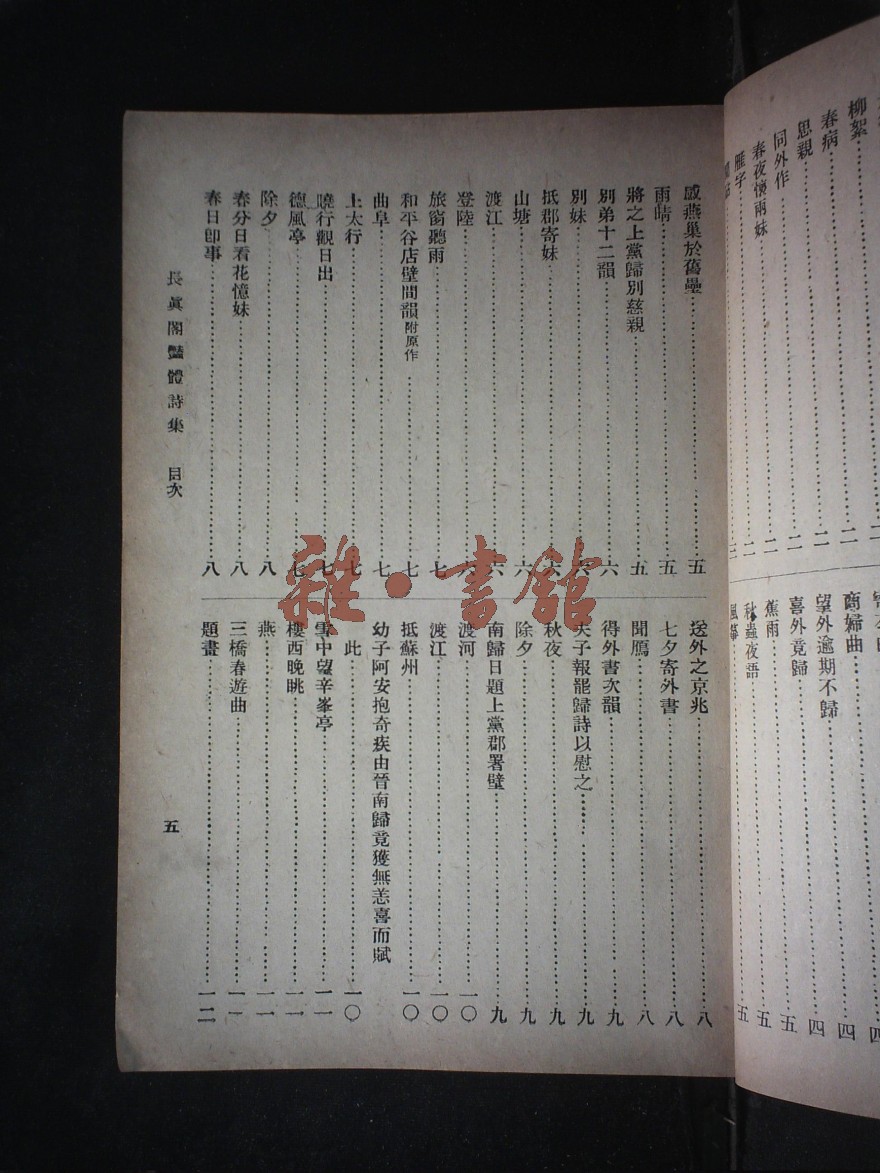 柳絮……二
春病……二
思親……二
同外作……二
春夜懷兩妹……二
雁字……二
商婦曲……四
望外逾期不歸……四
喜外竟歸……五
蕉雨……五
秋蟲夜語……五
感燕巢於舊壘……五
雨晴……五
將之上黨歸別慈親……五
別弟十二韻……六
別妹……六
抵郡寄妹……六
山塘……六
渡江……六
登陸……六
旅窗聽雨……七
和平谷店壁間韻附原作……七
曲阜……七
上太行……七
曉行觀日出……七
德風亭……七
除夕……八
春分日看花憶妹……八
春日卽事……八
送外之京兆……八
七夕寄外書……八
聞鴈……八
得外書次韻……九
夫子報罷歸詩以慰之……九
秋夜……九
除夕……九
南歸日題上黨郡署壁……九
渡河……一〇
渡江……一〇
抵蘇州……一〇
幼子阿安抱奇疾由晉南歸竟獲無恙喜而賦
此……一〇
雪中望辛峯亭……一一
樓西晚眺……一一
燕……一一
三橋春遊曲……一一
題畫……一二
長眞閣豔體詩集 目次
五
雜·書館